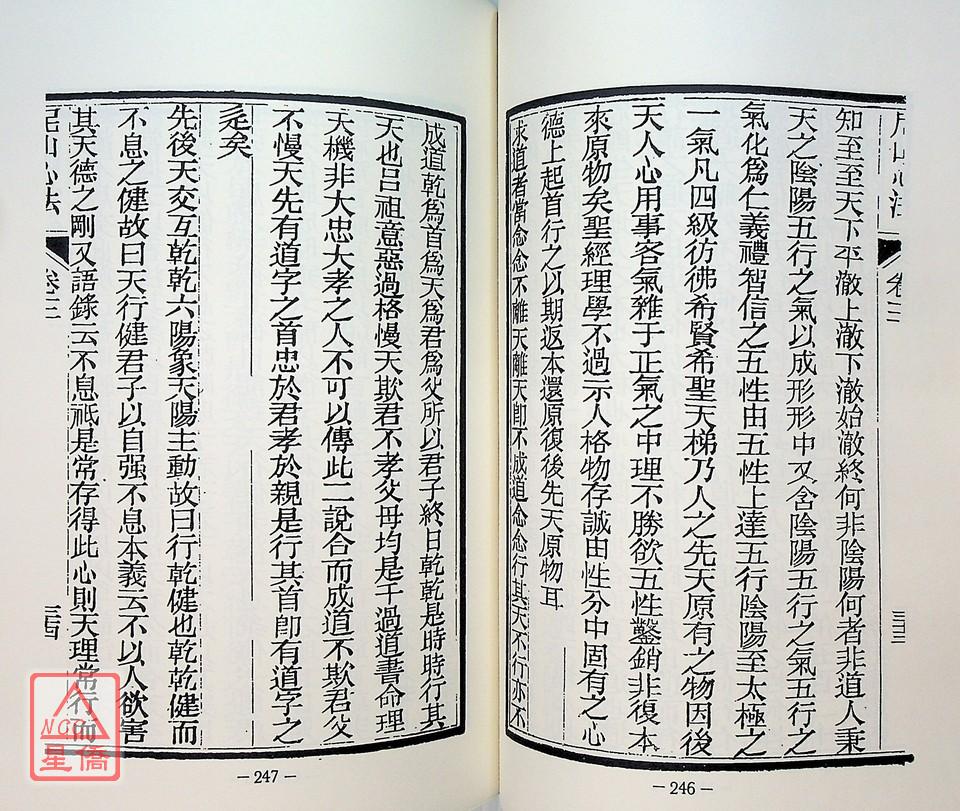 知至至天下平澈上澈下澈始澈終何非陰陽何者非道人秉
天之陰陽五行之氣以成形形中又含陰陽五行之氣五行之
氣化爲仁義禮智信之五性由五性上達五行陰陽至太極之
一氣凡四級彷彿希賢希聖天梯乃人之先天原有之物因後
天人心用事客氣雜于正氣之中理不勝欲五性鑿銷非復本
來原物矣聖經理學不過示人格物存誠由性分中固有之心
德上起首行之以期返本還原復後先天原物耳
求道者當念念不離天離天卽不成道念念行其天不行亦不
246
成道乾爲首爲天爲君爲父所以君子終日乾乾是時時行其
天也呂祖意惡過格慢天欺君不孝父母均是千過道書命理
天機非大忠大孝之人不可以傳此二說合而成道不欺君父
不慢天先有道字之首忠於君孝於親是行其首卽有道字之
辵矣
先後天交互乾乾六陽象天陽主動故曰行乾健也乾乾健而
不息之健故曰天行健君子以自强不息本義云不以人欲害
其天德之剛又語錄云不息祇是常存得此心則天理常行而
卷二
247
NCC
星僑